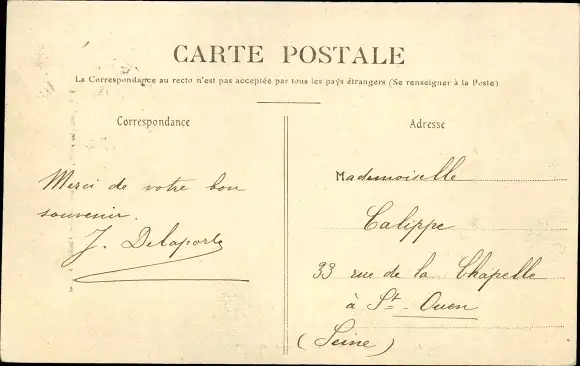 CARTE POSTALE
La Correspondance au recto n'est pas acceptée par tous les pays étrangers (Se renseigner à la Poste)
Correspondance
Merci de votre bon
souvenir.
J. Delaporte
Adresse
Mademoiselle
Calippe
33 rue de la Chapelle
à St-Ouen
(Seine)